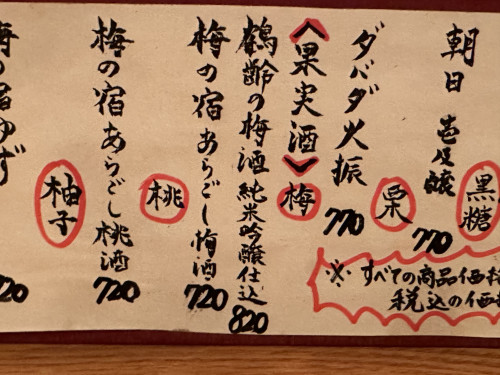 朝日 壱乃醸
黒糖
770
ダバダ火振
栗
770
〈果実酒〉
梅
鶴齢の梅酒 純米吟醸仕込
820
梅の宿あらごし梅酒
720
梅の宿あらごし桃酒
桃
720
梅の宿ゆず
柚子
720
※すべての商品価格
税込の価格